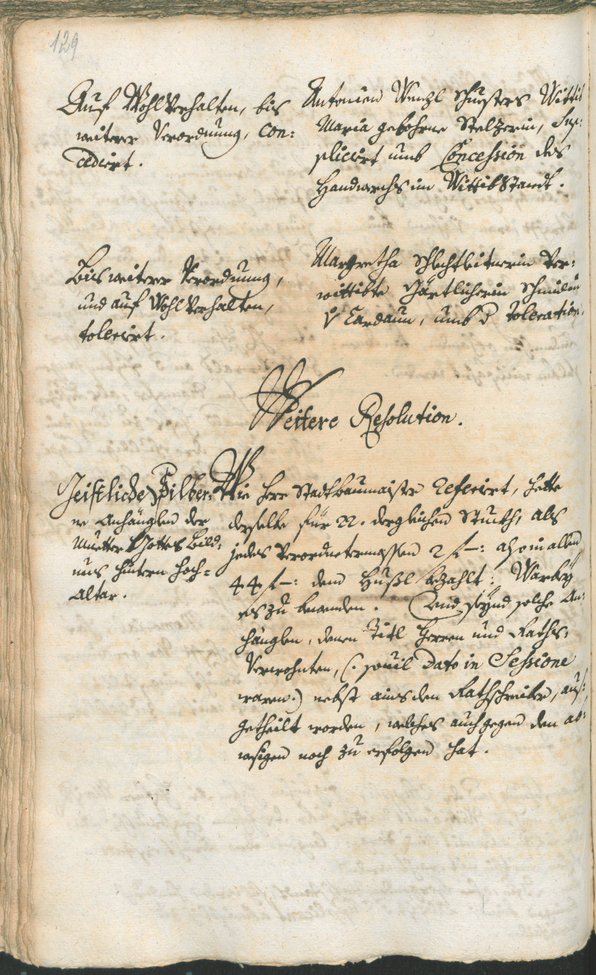 129
Auf Wohlverhalten, bis
weiterer Verordnung, con:
cedirt.
Antonien Wenzl Schusters Wittib
Maria gebohrne Stelzerin, Sup:
plicirt umb Concession des
Handwerchs im Wittibstandt.
Bis weiterer Verordnung,
und auf Wohlverhalten,
tolerirt.
Margretha Schlechtleitnerin ver:
wittibte Gärtlicherin
Cardaun, umb d toleration.
Weitere Resolution.
Geistliche Silber:
ne Anhänglen der
Muetter Gottes Bild:
nus hintern Hoch=
Altar.
Wie Herr Stadtbaumaister referirt, hette
derselbe für 22. dergleichen Stuckh, als
jedes verordnetermassen 2 f —: also in allen
44 f —: dem bezahlt:
es zu bewenden. Und seynd solche An:
hänglen, denen Titl Herren und Raths:
Verwohnten, (: souil Dato in Sessione
waren:) nebst ains dem Rathschreiber, aus:
getheilt worden, welches auch gegen den ab:
wesigen noch zu erfolgen hat.